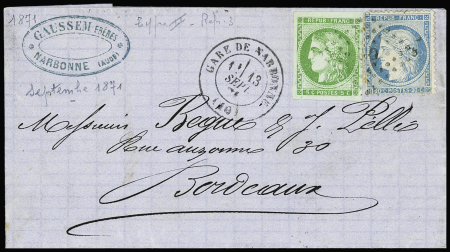 1871
GAUSSEM FRÈRES
NARBONNE (AUDE)
Septembre 1871
GARE DE NARBONNE
13
SEPT.
71
(10)
REPUB. FRANC.
5 C. POSTES 5 C.
REPUB. FRANC.
Messieurs Begué & J. Pellis
Rue auzonne 30
Bordeaux